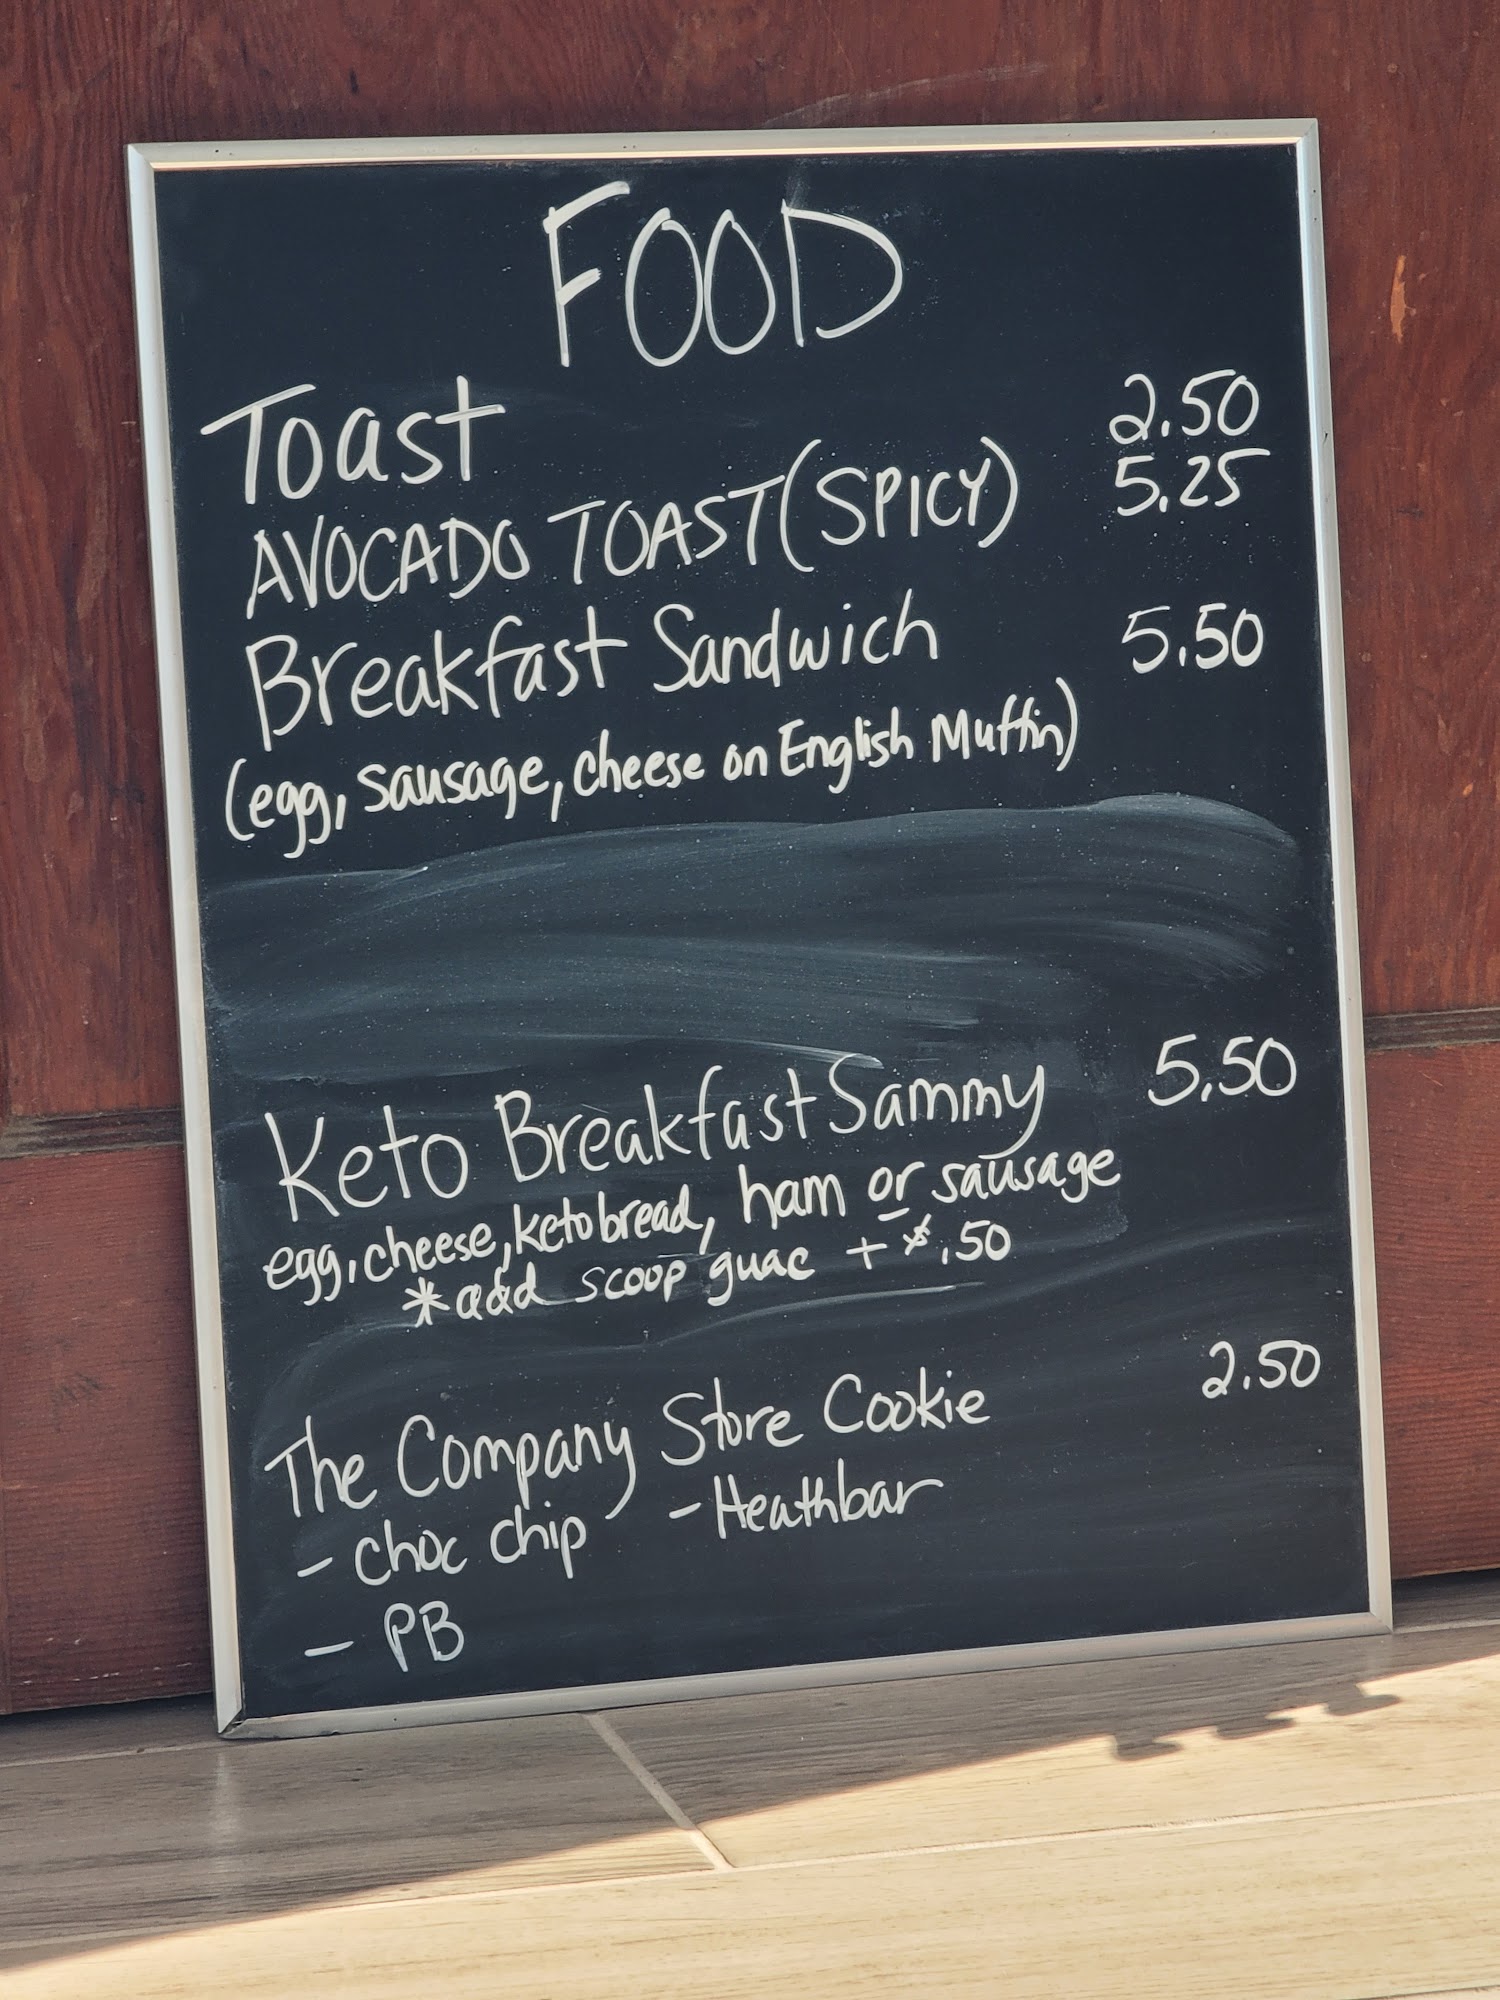 FOOD
Toast 2.50
AVOCADO TOAST (SPICY) 5.25
Breakfast Sandwich 5.50
(egg, sausage, cheese on English Muffin)
Keto Breakfast Sammy 5.50
egg, cheese, keto bread, ham or sausage
*add scoop guac + $.50
The Company Store Cookie 2.50
- choc chip - Heathbar
- PB